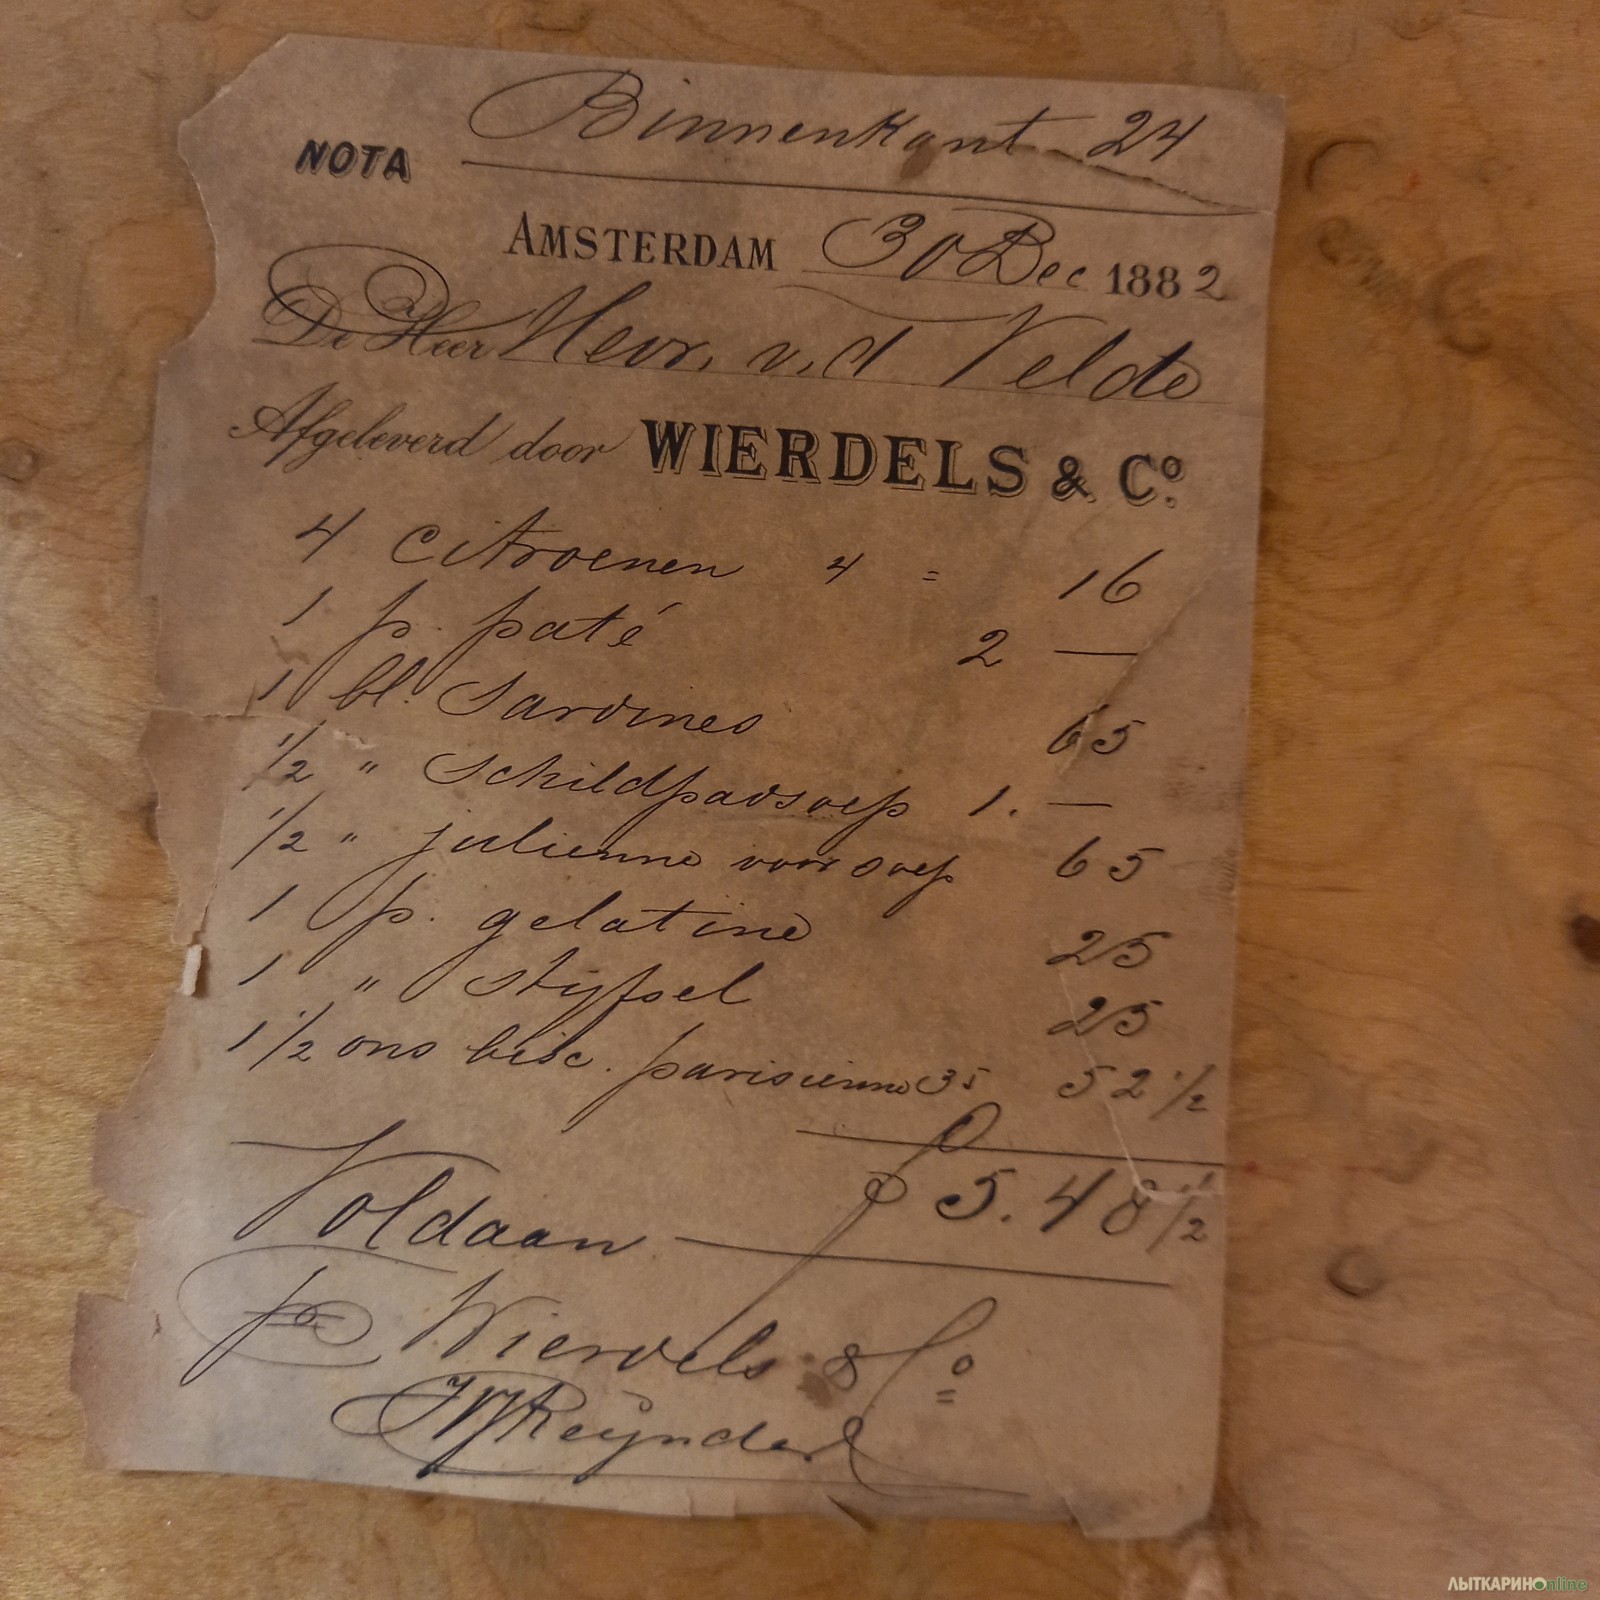 Binnenkant 24
NOTA
AMSTERDAM 30 Dec 1882
De Heer Mevr. v.d Velde
Afgeleverd door WIERDELS & Co.
4 citroenen 4 = 16
1 p. paté 2 —
1 bl. Sardines 65
1/2 " Schildpadsoep 1. —
1/2 " julienne voor soep 65
1 p. gelatine 25
1 " stijfsel 25
1 1/2 ons bisc. parisienne 35 52 1/2
f 5.48 1/2
Voldaan
Wierdels & Co
Reijnders
ЛЫТКАРИНОonline